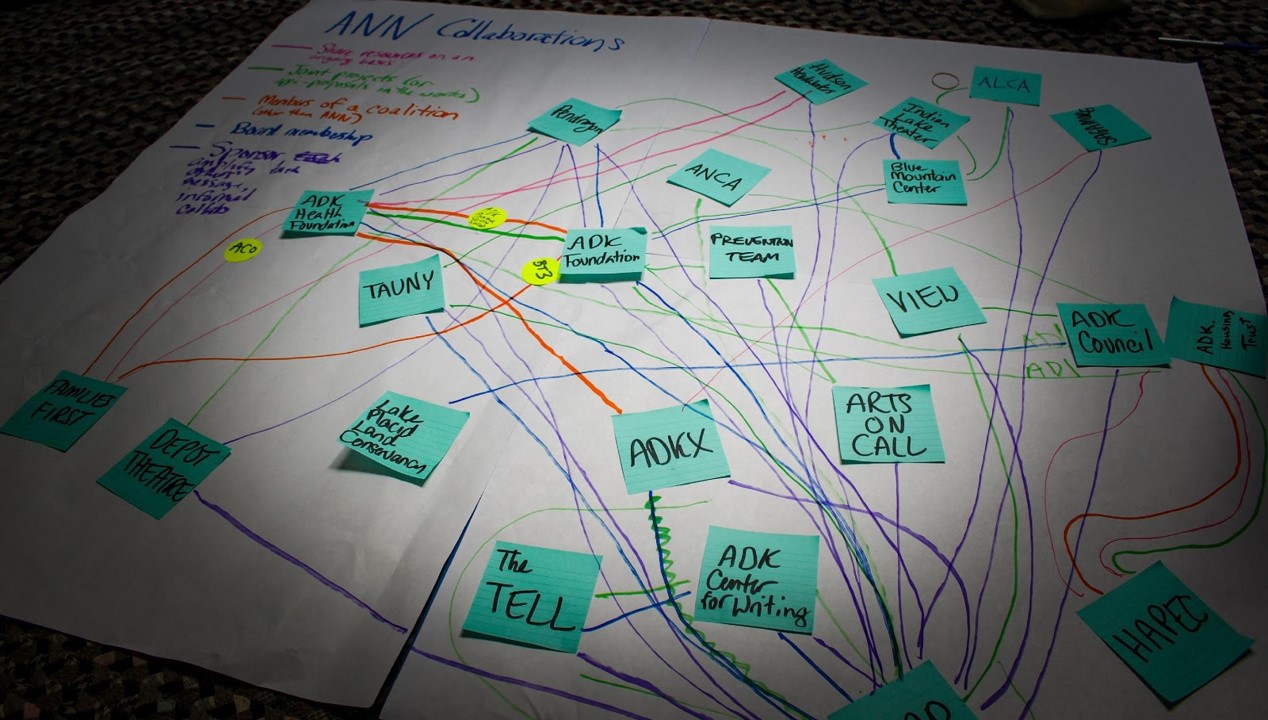 ANN Collaborations
Share resources on an
ongoing basis
Joint projects (or
in the works)
Members of a coalition
(other than ANN)
Board membership
Sponsor
informal
Pendragon
Hudson
Headwaters
Indian
Lake
Theater
ALCA
Blue
Mountain
Center
ANCA
ADK
Health
Foundation
ACO
BT3
ADK
Foundation
PREVENTION
TEAM
TAUNY
VIEW
ADK
Council
ADK
Housing
Trust
FAMILIES
FIRST
DEPOT
THEATRE
Lake
Placid
Land
Conservancy
ADKX
ARTS
ON
CALL
The
TELL
ADK
Center
for Writing
HAPEC